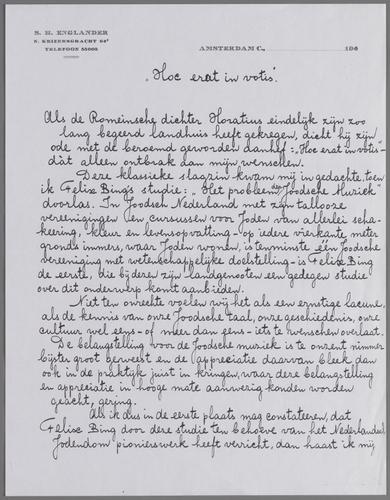 S. H. ENGLANDER
N. KEIZERSGRACHT 64
TELEFOON 55005
AMSTERDAM C., 193
„Hoc erat in votis”.
Als de Romeinsche dichter Horatius eindelijk zijn zoo
lang begeerd landhuis heeft gekregen, dicht hij zijn
ode met de beroemd geworden aanhef: „Hoc erat in votis” -
dàt alleen ontbrak aan mijn wenschen.
Deze klassieke slagzin kwam mij in gedachte, toen
ik Felix Bing's studie: „Het probleem Joodsche Muziek”
doorlas. In Joodsch Nederland met zijn tallooze
vereenigingen en cursussen voor Joden van allerlei scha-
keering, kleur en levensopvatting - op iedere vierkante meter
gronds immers, waar Joden wonen, is tenminste één Joodsche
vereeniging met wetenschappelijke doelstelling - is Felix Bing
de eerste, die bij deze zijn landgenooten een gedegen studie
over dit onderwerp komt aanbieden.
Niet ten onrechte voelen wij het als een ernstige lacune,
als de kennis van onze Joodsche taal, onze geschiedenis, onze
cultuur wel eens - of meer dan eens - iets te wenschen overlaat.
De belangstelling voor de Joodsche muziek is te onzent nimmer
bijster groot geweest en de appreciatie daarvan bleek dan
ook in de praktijk juist in kringen, waar deze belangstelling
en appreciatie in hooge mate aanwezig konden worden
geacht, gering.
Als ik dus in de eerste plaats mag constateren, dat
Felix Bing door deze studie ten behoeve van het Nederlandsche
Jodendom pionierswerk heeft verricht, dan haast ik mij